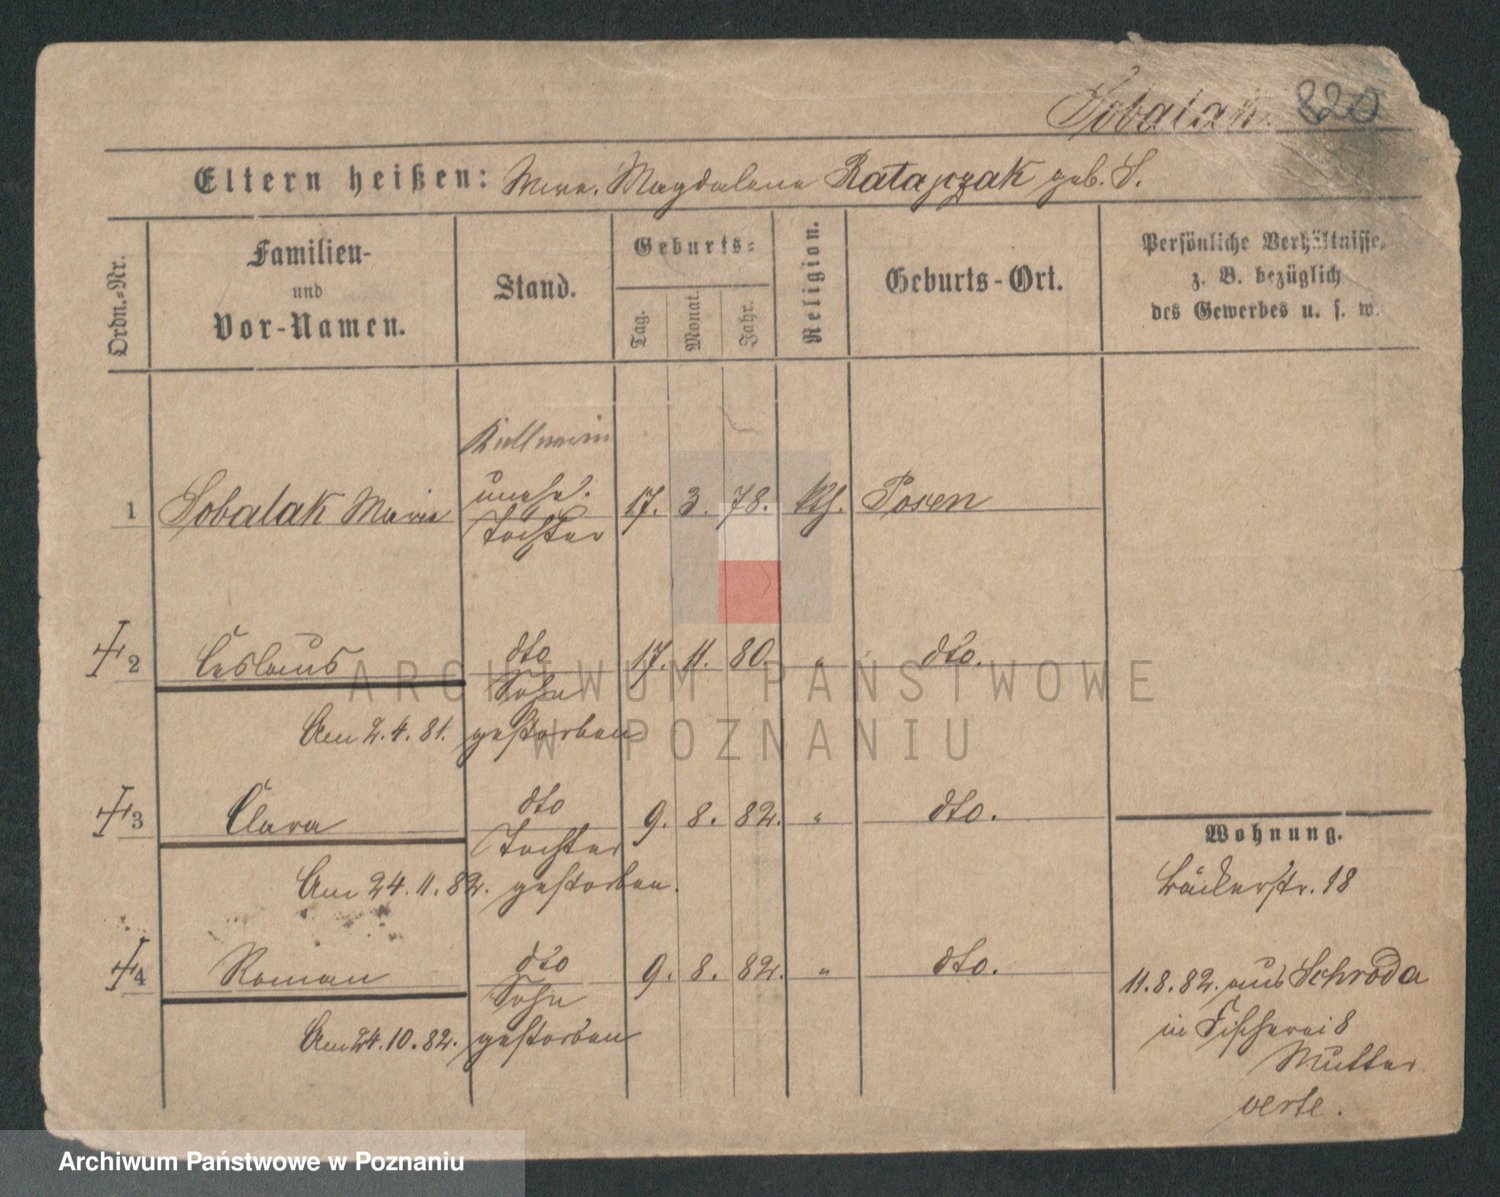 Sobalak. 820
Eltern heißen: Wwe. Magdalena Ratajczak geb. S.
Ordn.-Nr.
Familien-
und
Vor-Namen.
Stand.
Geburts-
Tag.
Monat.
Jahr.
Religion.
Geburts-Ort.
Persönliche Verhältnisse,
z. B. bezüglich
des Gewerbes u. s. w.
Kellnerin
1 Sobalak Marie unehel. Tochter 17. 3. 78. kth. Posen
2 Ceslaus dto Sohn 17. 11. 80. " dto.
Am 2.4.81. gestorben
3 Clara dto Tochter 9. 8. 82. " dto.
Am 24.11.82. gestorben.
4 Roman dto Sohn 9. 8. 82. " dto.
Am 24.10.82. gestorben
Wohnung.
Bäckerstr. 18
11.8.82. aus Schroda
in Fischerei 8
Mutter
verte.
ARCHIWUM PAŃSTWOWE
W POZNANIU
Archiwum Państwowe w Poznaniu